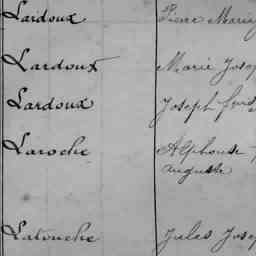 Lardoux Pierre Marie
Lardoux Marie Josep
Lardoux Joseph
Laroche Alphonse
Auguste
Latouche Jules Josep